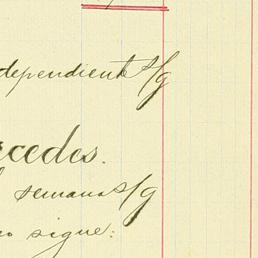 dependiente s/g
rcedes.
semanas s/g
sigue: